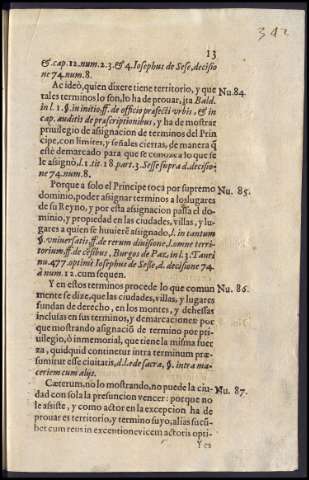 342
13
& cap. 12. num. 2. 3. & 4. Iosephus de Sese, decisio
ne 74. num. 8.
Ac ideò, quien dixere tiene territorio, y que Nu. 84.
tales terminos lo son, lo ha de prouar, Bald.
in l. 1. §. in initio, ff. de officio præfecti vrbis, & in
cap. auditis de præscriptionibus, y ha de mostrar
priuilegio de assignacion de terminos del Prin
cipe, con limites, y señales ciertas, de manera q̃
esté demarcado para que se conozca lo que se
le assignò, l. 1. tit. 18. part. 3. Sesse supra d. decisio-
ne 74. num. 8.
Porque a solo el Principe toca por supremo Nu. 85.
dominio, poder assignar terminos a los lugares
de su Reyno, y por esta assignacion passa el do
minio, y propiedad en las ciudades, villas, y lu-
gares a quien se huuiere assignado, l. in tantum
§. vniuersatis, ff. de rerum diuisione, l. omne terri-
torium, ff. de cẽsibus, Burgos de Paz, in l. 3. Tauri
nu. 477. optimè Iosephus de Sesse, d. decisione 74.
à num. 12. cum sequen.
Y en estos terminos procede lo que comun Nu. 86.
mente se dize, que las ciudades, villas, y lugares
fundan de derecho, en los montes, y dehessas
inclusas en sus terminos, y demarcaciones por
que mostrando asignaciõ de termino por pri-
uilegio, ò inmemorial, que tiene la misma fuer
ça, quidquid continetur intra terminum præ-
sumitur esse ciuitatis, d. l. æde sacra, §. intra ma-
ceriem cum alijs.
Cæterum, no lo mostrando, no puede la ciu- Nu. 87.
dad con sola la presuncion vencer: porque no
le assiste, y como actor en la excepcion ha de
prouar es territorio, y termino suyo, alias sucũ-
bet cum reus in exceptione vicem actoris opti-
Y es